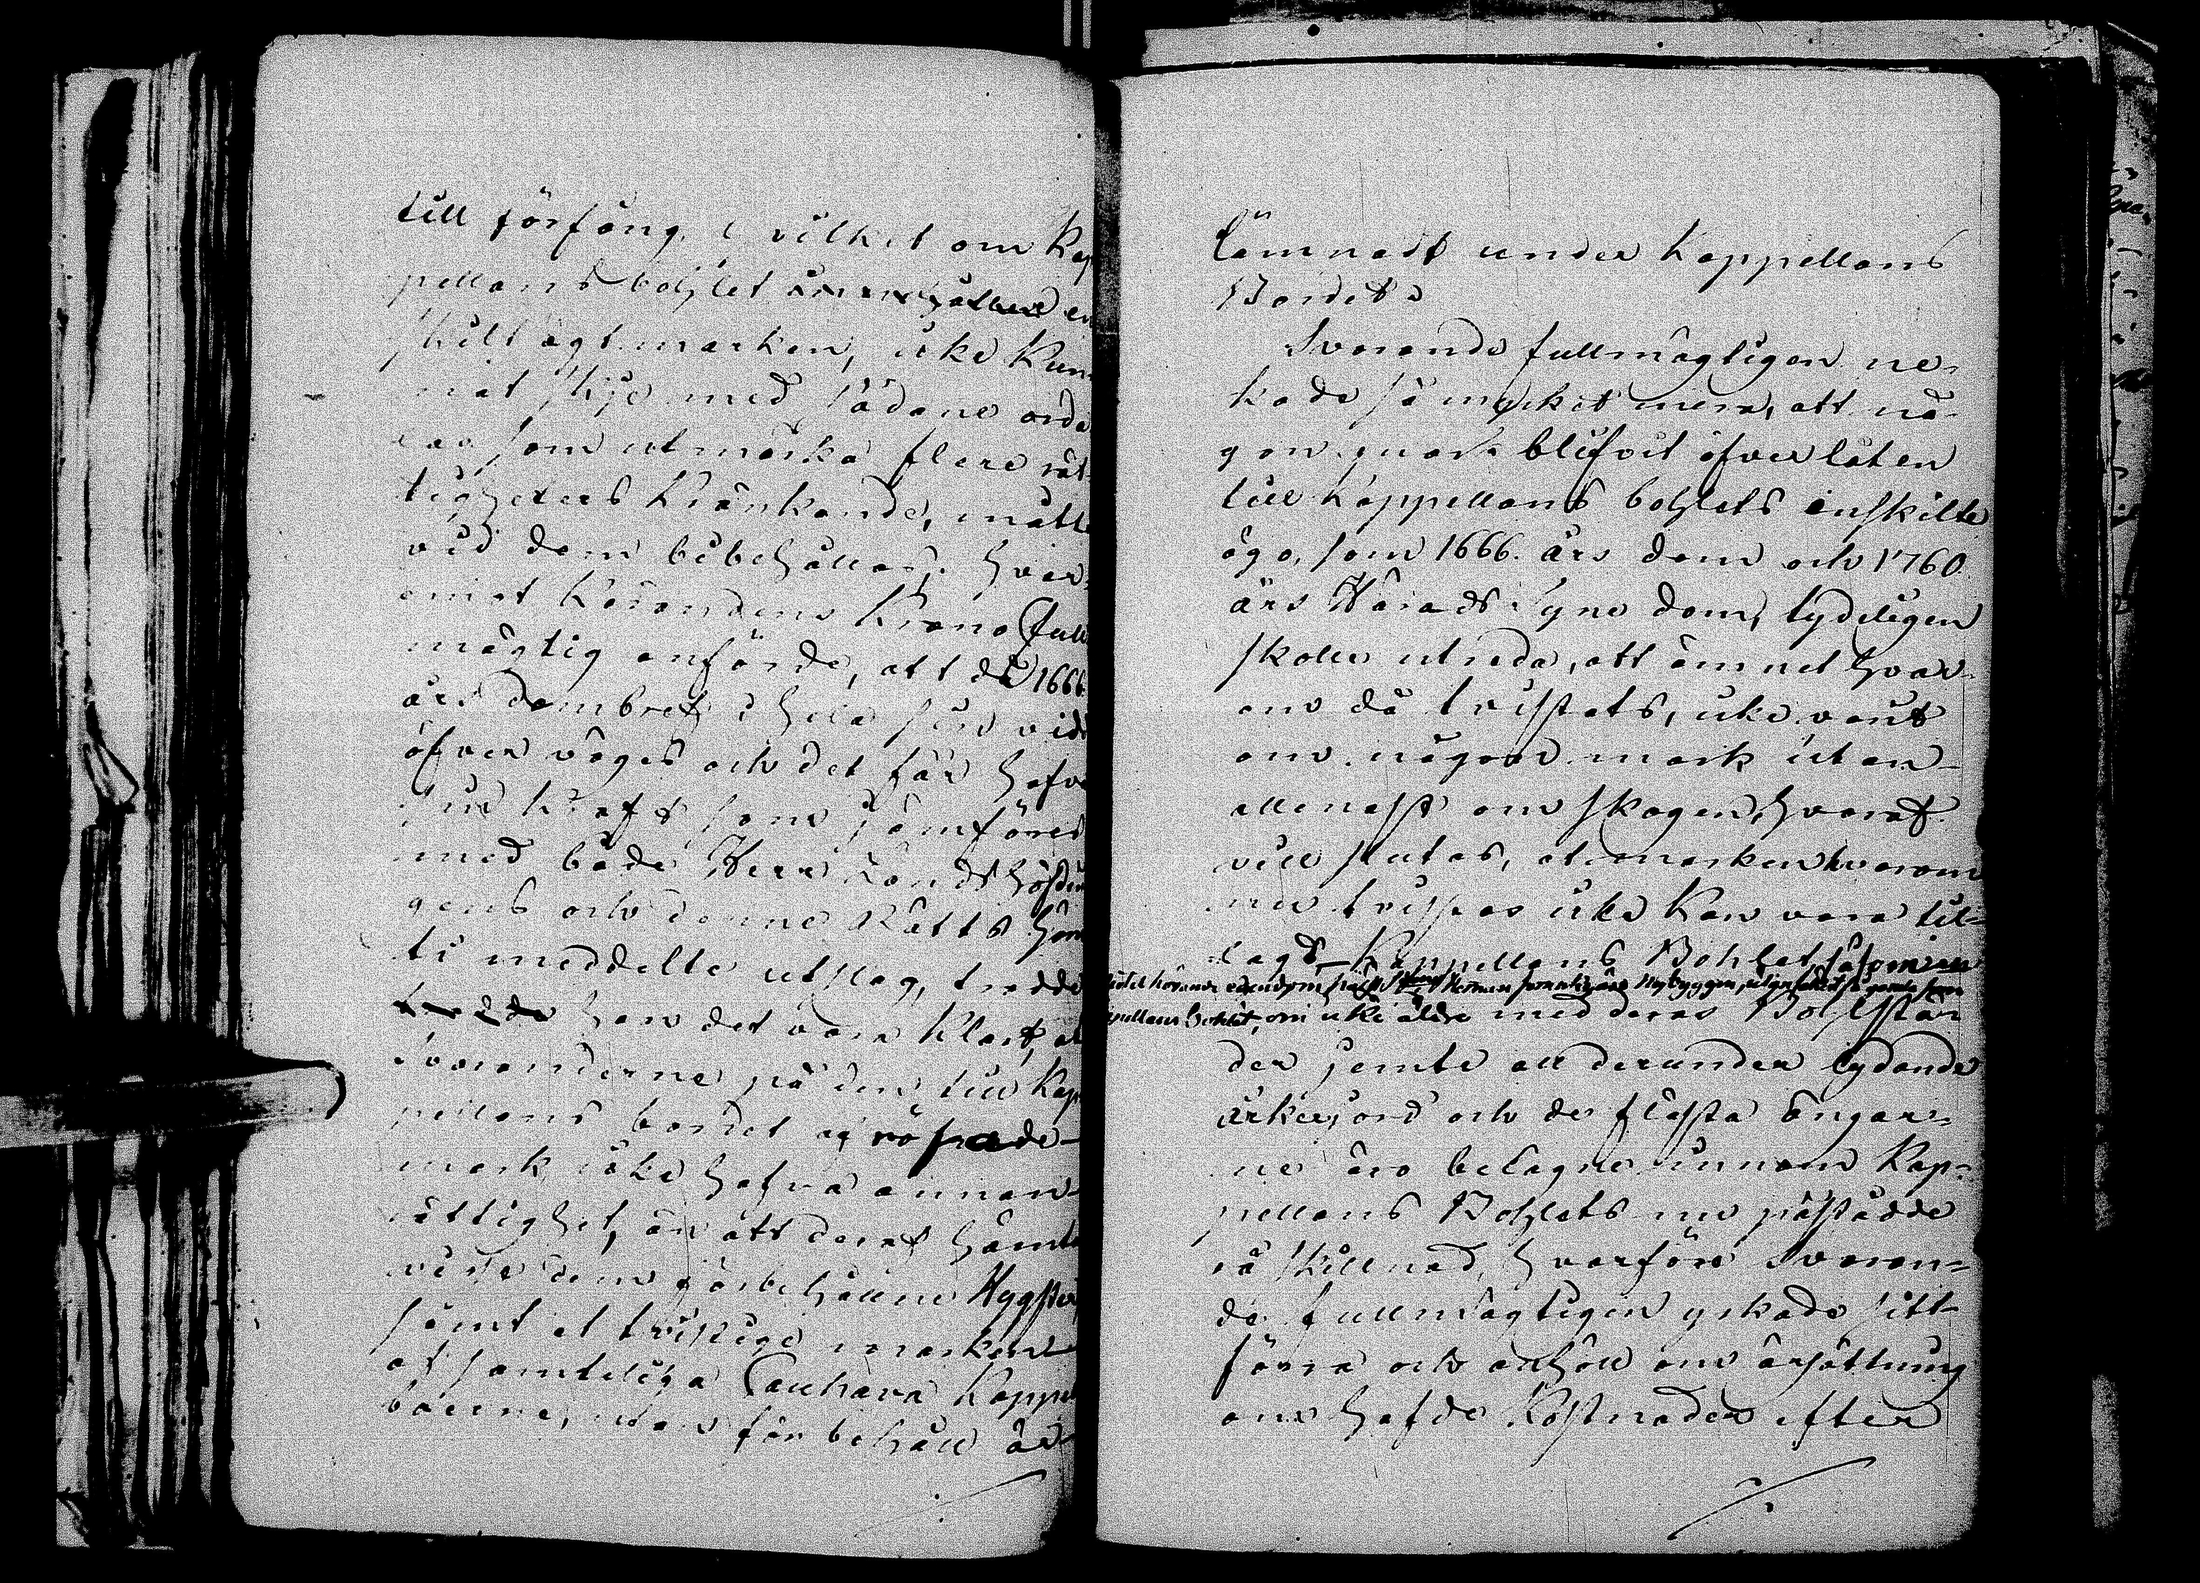 till förfång, hvilket om Kap
pellans bohlet en
skilt ägt marken, icke kun¬
nat skje med sådane orda
lag som utmärka flere rät¬
tigheters kränkande, måtte
vid dem bibehållas; hvar¬
emot Kärandens Krono Full
mägtig anförde, att då 1666
års dombref i hela sin vidd
öfverväges och det får hafva
sin kraft som jämföres
med både Herr Landshöfdin
gens och denne Rätts
ti meddelte utslag, trodde
han det vara klart, at
Svaranderne på den till Kap
pellans bordet
mark icke hafva annan
rättighet, än att deraf hämta
visse dem förbehållne
samt at tvistige marken
af samteliga Cauhava Kappel
boerne, utan förbehåll är
lämnadt under Kappellans
Bordet.
Svarande fullmägtigen ne¬
kade så mycket mera, att nå¬
gon mark blifvit öfverlåten
till Kappellans bohlets enskilte
ägo, som 1666. års dom och 1760
års Härads Syne dom, tydeligen
skola utreda, att ämnet hvar¬
om då tvistats, icke varit
om någon mark utan
allenast om skogen, hvaraf
vill slutas, at marken hvarom
nu tvistas icke kan vara til¬
lagd Kappellans Bohlet, såsom en
Nybyggen,
pellans Bohlet, om icke äldre med deras Bohlstä
der jemte all derunder lydande
åkerjord och de flästa ängar¬
ne äro belägne innom Kap¬
pellans Bohlets nu påstådde
rå skillnad, hvarföre Svaran¬
de fullmägtigen yrkade sitt
förra och anhöll om ersättning
om hafde kostnader efter